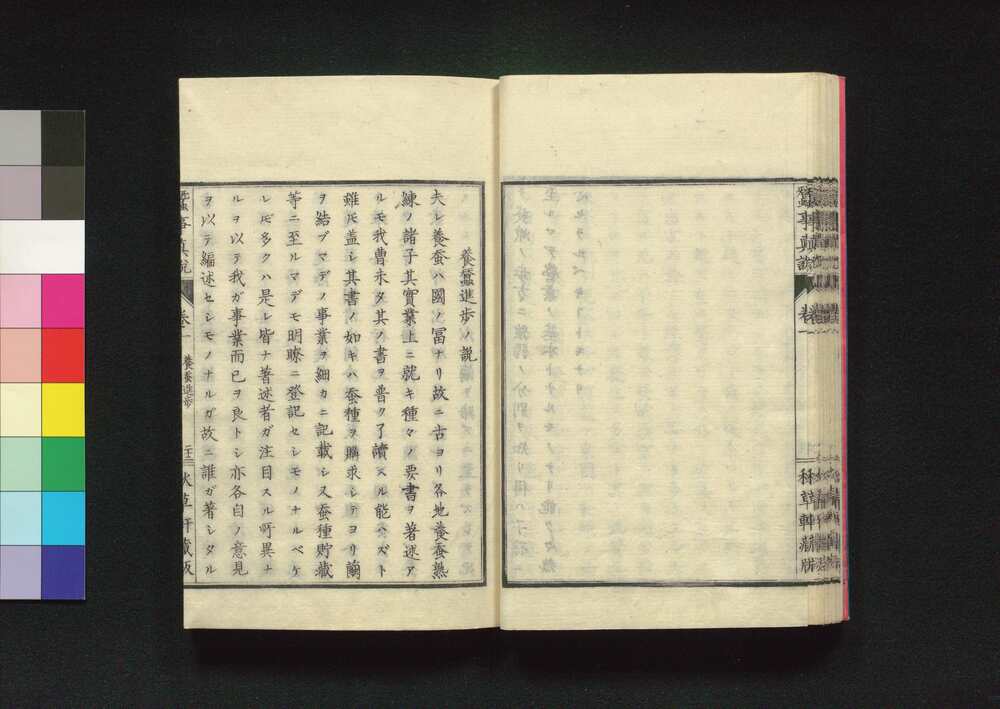 蠶事真説
卷一
秌草軒蔵版
養蠶進歩ノ説
夫レ養蚕ハ國ノ冨ナリ故ニ古ヨリ各地養蚕熟
練ノ諸子其實業上ニ就キ種々ノ要書ヲ著述ア
ルモ我曹未タ其ノ書ヲ普ク了讀スル能ハズト
雖𪜈盖シ其書ノ如キハ蚕種ヲ購求シテヨリ繭
ヲ結ブマデノ事業ヲ細カニ記載シ又蚕種貯蔵
等ニ至ルマデモ明瞭ニ登記セシモノナルベケ
レ𪜈多クハ是レ皆ナ著述者ガ注目スル所異ナ
ルヲ以テ我ガ事業而已ヲ良トシ亦各自ノ意見
ヲ以テ編述セシモノナルガ故ニ誰ガ著シタル
蠶事真説
卷一
養蚕進歩
二十三
秋草軒蔵版